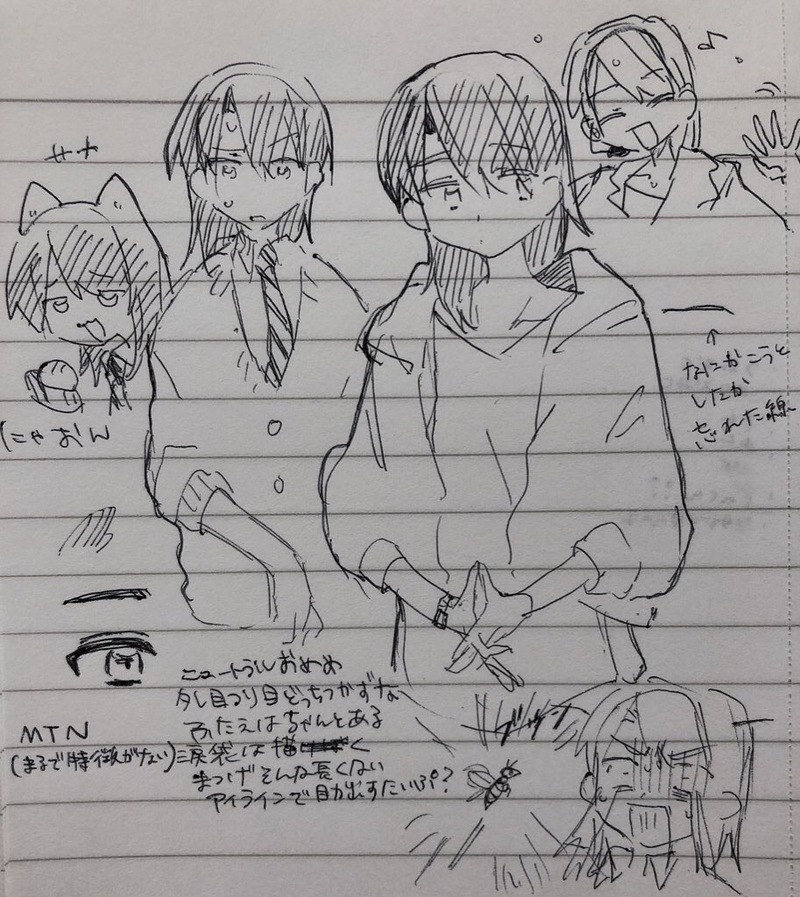 サナ
にゃおん
↑
なにかこうと
したか
忘れた線
ニュートラルおめめ
タレ目つり目どっちつかずな
ふたえはちゃんとある
涙袋は描く
まつげそんな長くない
アイラインで目力出すたいぷ?
MTN
(まるで特徴がない)